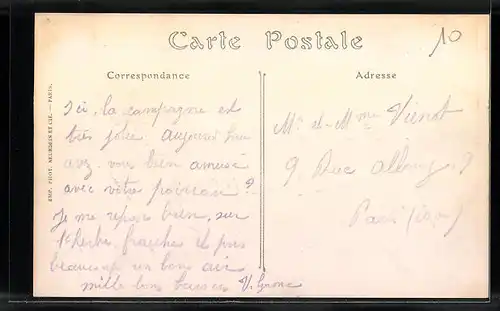 Carte Postale
10
Correspondance
Adresse
Ici, la campagne est
très jolie. aujourd'hui
avez vous bien amusé
avec votre
?
Je me repose bien, sur
l'herbe fraiche
beaucoup un bon air
mille bons baisers
Mr et Mme Vienot
9. Rue
Paris
IMP. PHOT. NEURDEIN ET CIE. — PARIS.